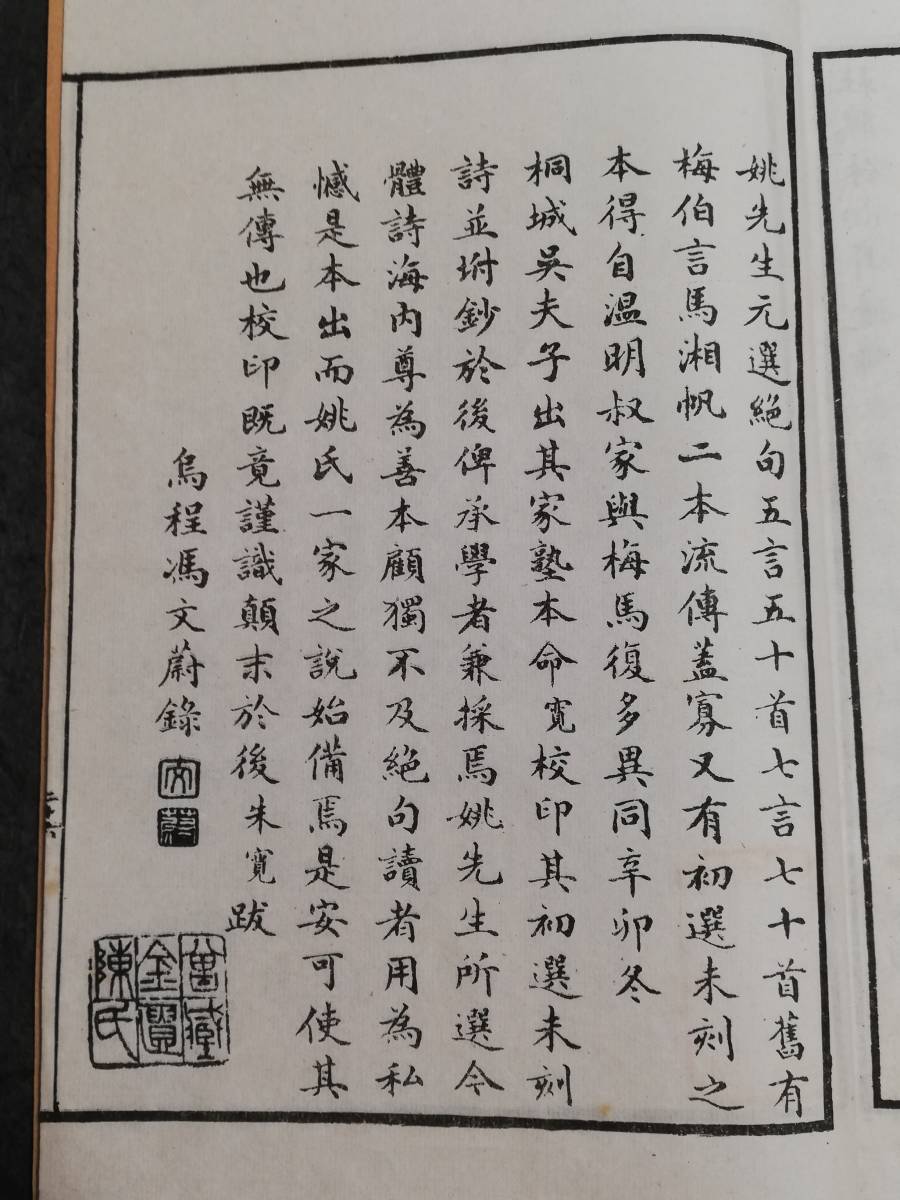 姚先生元選絕句五言五十首七言七十首舊有
梅伯言馬湘帆二本流傳蓋寡又有初選未刻之
本得自溫明叔家與梅馬復多異同辛卯冬
桐城吳夫子出其家塾本命寬校印其初選未刻
詩並坿鈔於後俾承學者兼採焉姚先生所選今
體詩海內尊為善本顧獨不及絕句讀者用為私
憾是本出而姚氏一家之說始備焉是安可使其
無傳也校印既竟謹識顛末於後朱寬跋
烏程馮文蔚錄
文
蔚
曾臧
金匱
陳氏
二十六